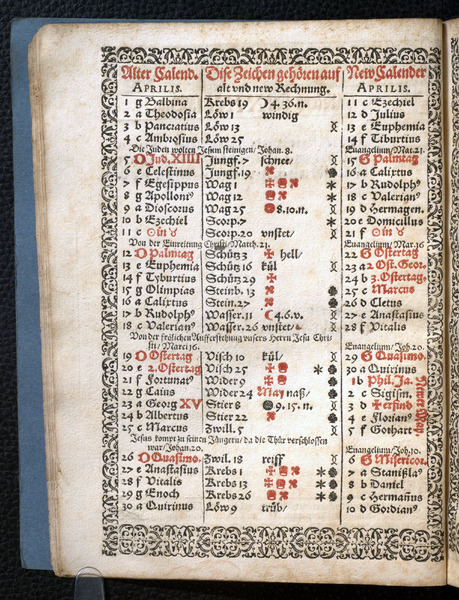 Alter Calend. Dise Zeichen gehören auf New Calender
APRILIS. alt vnd new Rechnung. APRILIS.
1 g Balbina Krebs 19 ☽ 4 36. n. 11 c Ezechiel
2 a Theodosia Löw 1 windig 12 d Julius
3 b Pancratius Löw 13 13 e Euphemia
4 c Ambrosius Löw 25 14 f Tiburtius
Die Juden wolten Jesum steinigen/ Johan. 8. Evangelium/Mat. 21.
5 D Jud. XIIII Jungf. 7 schnee/ 15 G Palmtag
6 e Celestinus Jungf. 19 16 a Calixtus
7 f Egesippus Wag 1 17 b Rudolphꝰ
8 g Apolloniꝰ Wag 12 18 c Valerianꝰ
9 a Dioscorus Wag 25 8. 10. n. 19 d Hermogen.
10 b Ezechiel Scorp. 7 20 e Domicilius
11 c ☉ in ♉ Scorp. 20 vnstet/ 21 f ☉ in ♉
Von der Einreitung Christi/ Matth. 21. Evangelium/Mar. 16
12 D Palmtag Schütz 3 hell/ 22 G Ostertag
13 e Euphemia Schütz 16 kül 23 a 2 Ost. Geor.
14 f Tyburtius Schütz 29 24 b 3. Ostertag.
15 g Olimpias Steinb. 13 25 c Marcus
16 a Calixtus Stein. 27 26 d Cletus
17 b Rudolphꝰ Wasser. 11 ☾ 4. 6. v. 27 e Anastasius
18 c Valerianꝰ Wasser. 26 vnstet/ 28 f Vitalis
Von der frölichen Aufferstehung vnsers Herrn Jesu Chri-
sti/ Marci 16. Evangelium/Joh. 20.
19 D Ostertag Visch 10 kül/ 29 G Quasimo.
20 e 2. Ostertag Visch 25 30 a Quirinus
21 f Fortunatꝰ Wider 9 1 b Phil. Ja.
22 g Caius Wider 24 May naß/ 2 c Sigism.
23 a Georg XV Stier 8 9. 15. n. 3 d ✠ erfind
24 b Albertus Stier 22 4 e Florianꝰ
25 c Marcus Zwill. 5 5 f Gothart
Jesus kompt zu seinen Jüngern/ da die Thür verschlossen
war/ Johan. 20. Evangelium/Joh. 10.
26 D Quasimo. Zwil. 18 reiff 6 G Misericor.
27 e Anastasius Krebs 1 7 a Stanislaꝰ
28 f Vitalis Krebs 13 8 b Daniel
29 g Enoch Krebs 26 9 c Hermanus
30 a Quirinus Löw 9 trüb/ 10 d Gordianꝰ